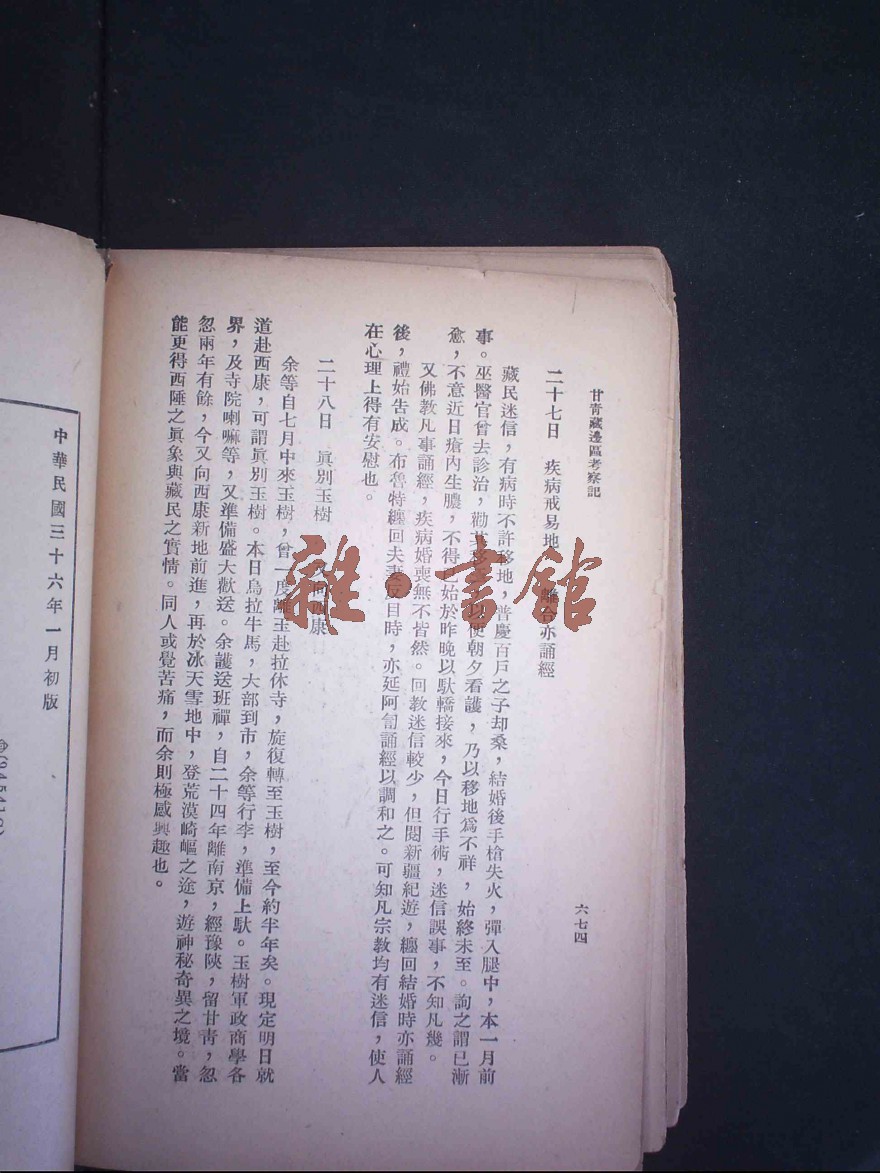 甘青藏邊區考察記
六七四
二十七日 疾病戒易地 離合亦誦經
藏民迷信，有病時不許移地，普慶百戶之子却桑，結婚後手槍失火，彈入腿中，本一月前
事。巫醫官曾去診治，勸其移 便朝夕看護，乃以移地爲不祥，始終未至。詢之謂已漸
愈，不意近日瘡內生膿，不得 始於昨晚以馱轎接來，今日行手術，迷信誤事，不知凡幾。
又佛教凡事誦經，疾病婚喪無不皆然。回教迷信較少，但閱新疆紀遊，纏回結婚時亦誦經
後，禮始告成。布魯特纏回夫妻反目時，亦延阿訇誦經以調和之。可知凡宗教均有迷信，使人
在心理上得有安慰也。
二十八日 眞別玉樹 西康
余等自七月中來玉樹，曾一度離玉赴拉休寺，旋復轉至玉樹，至今約半年矣。現定明日就
道赴西康，可謂眞別玉樹。本日烏拉牛馬，大部到市，余等行李，準備上馱。玉樹軍政商學各
界，及寺院喇嘛等，又準備盛大歡送。余護送班禪，自二十四年離南京，經豫陝，留甘青，忽
忽兩年有餘，今又向西康新地前進，再於冰天雪地中，登荒漠崎嶇之途，遊神秘奇異之境。當
能更得西陲之眞象與藏民之實情。同人或覺苦痛，而余則極感興趣也。
中華民國三十六年一月初版
雜·書館